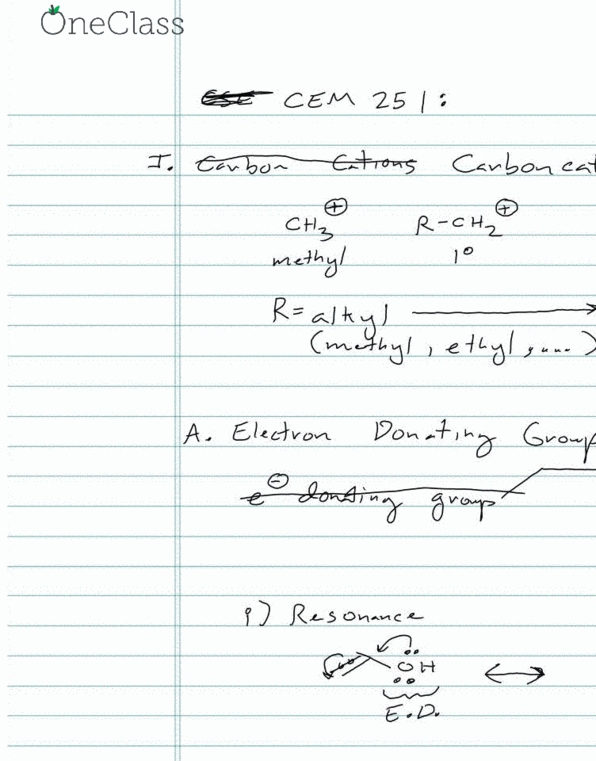 OneClass
CEM 251:
I. Carbon Cations Carbon cat
CH3⊕ R-CH2⊕
methyl 1°
R = alkyl
(methyl, ethyl, ....)
A. Electron Donating Group
e⊖ donating group
i) Resonance
OH
E.D.